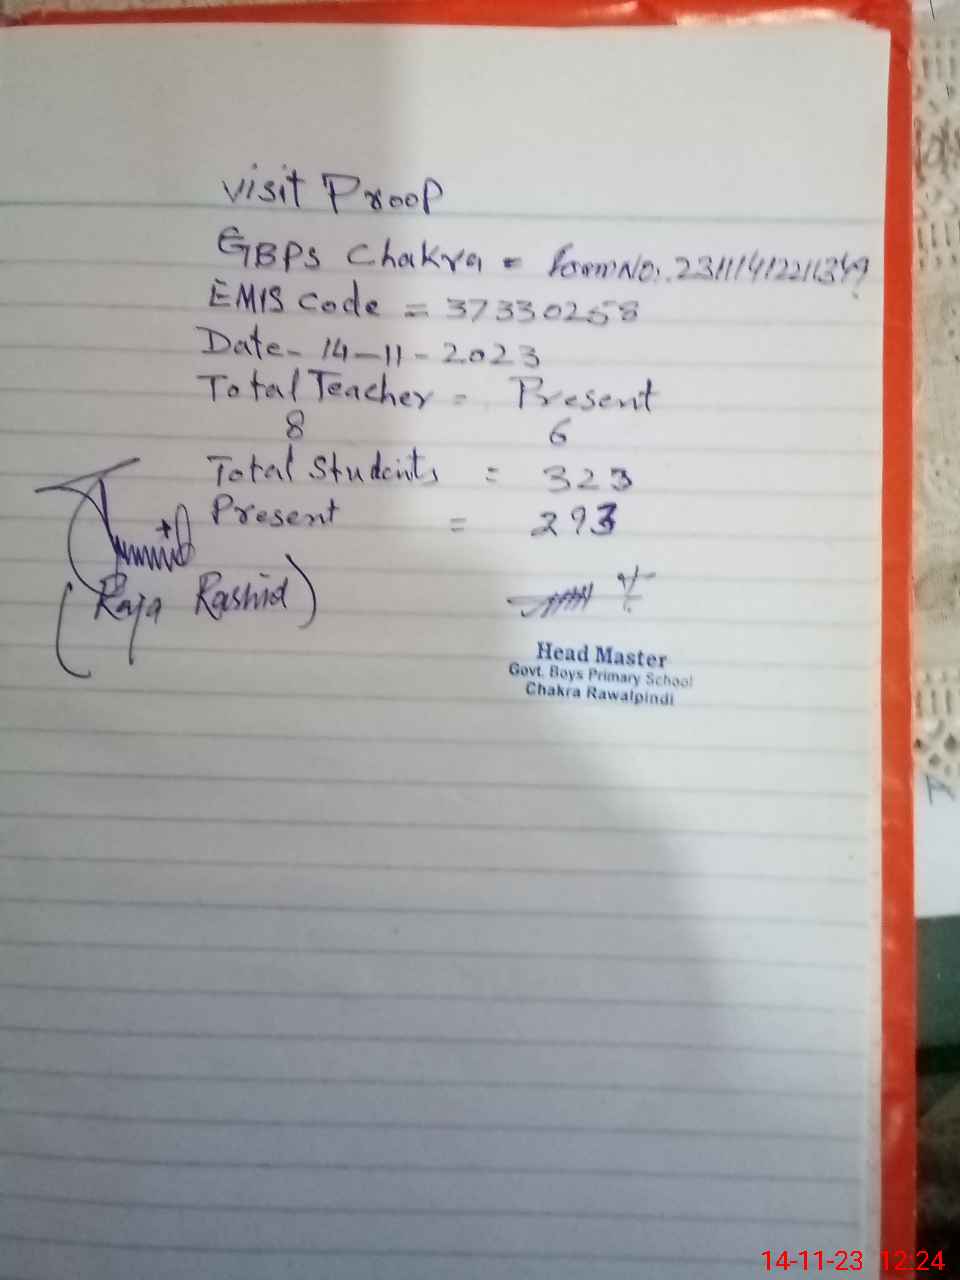 visit Proof
GBPS Chakra = Form No. 23111412211349
EMIS Code = 37330258
Date - 14-11-2023
Total Teacher = Present
8 6
Total Students = 323
Present = 293
(Raja Rashid)
Head Master
Govt. Boys Primary School
Chakra Rawalpindi
14-11-23 12:24